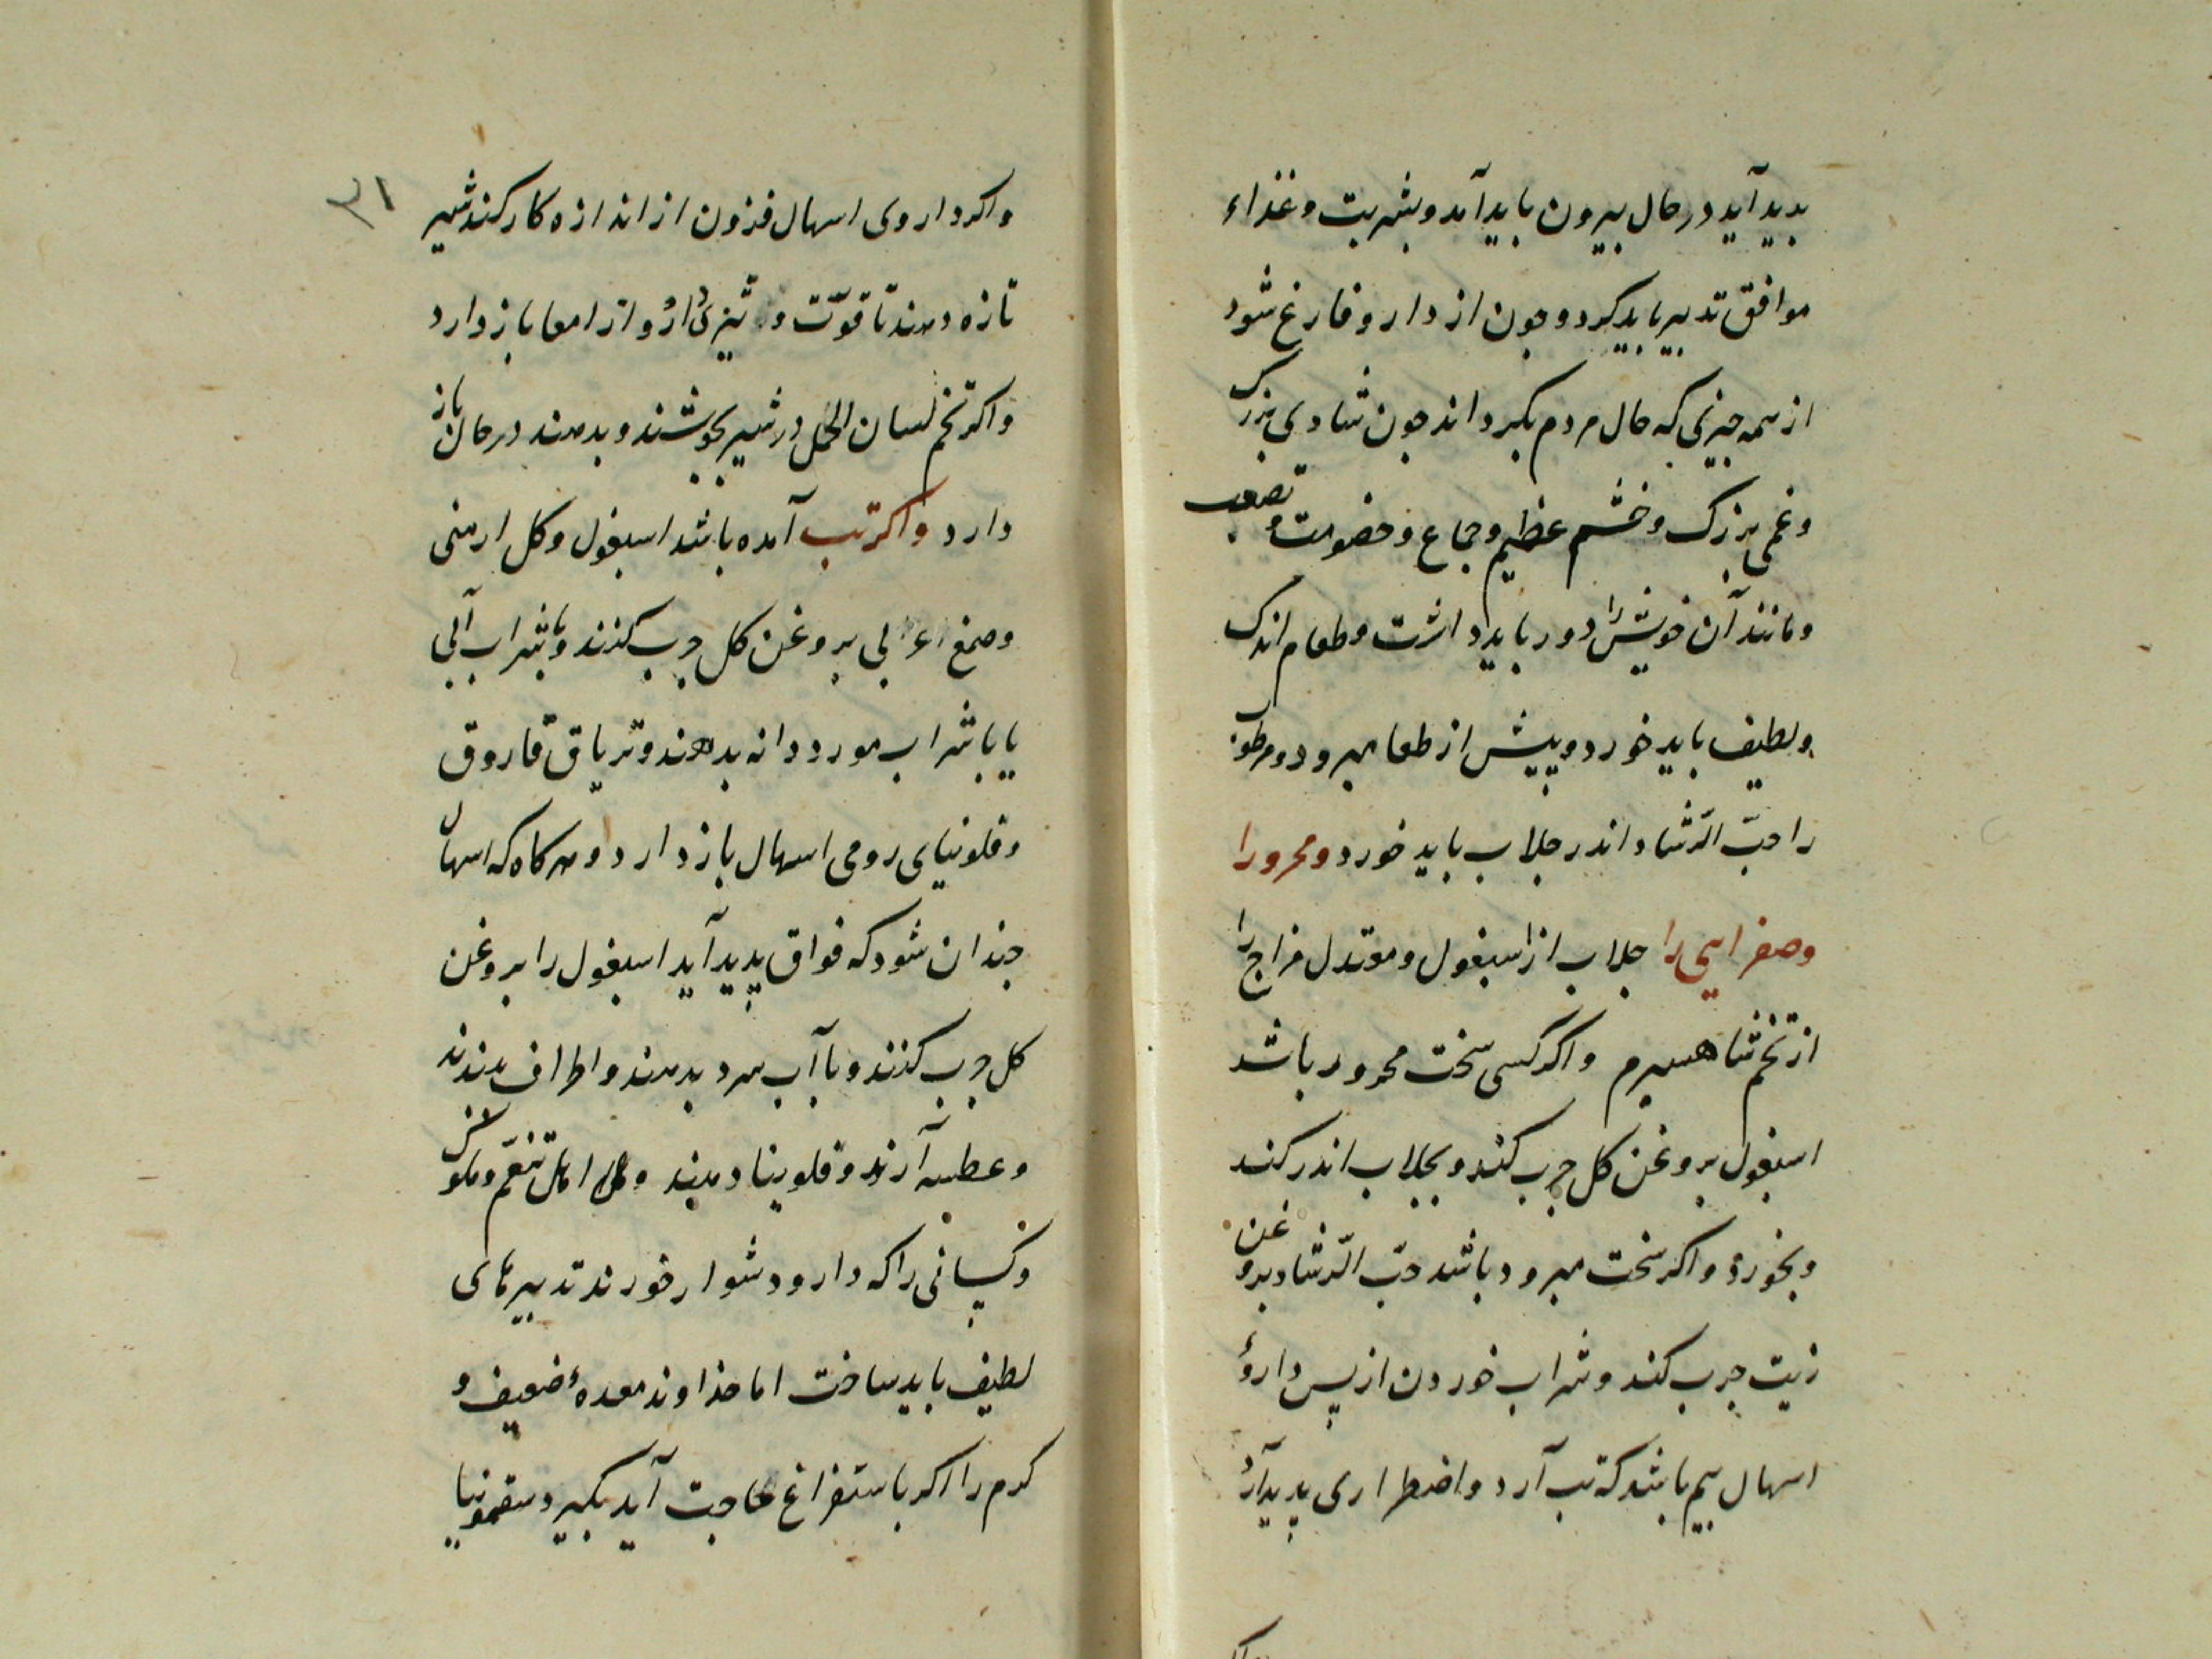 بدید آید در حال بیرون باید آمد و بشربت و غذاء
موافق تدبیر باید کرد و جون از دارو فارغ شود
از همه جیزی که حال مردم بکرداند جون شادی بزرک
و غمی بزرک و خشم عظیم و جماع و خصومت و تعصب
و مانند آن خویش را دور باید داشت و طعام اندک
و لطیف باید خورد و پیش از طعام مبرود و مرطوب
را حبّ الرّشاد اندر جلاب باید خورد و محرور را
و صفرایی را جلاب از اسبغول و معتدل مزاج را
از تخم شاهسبرم و اکر کسی سخت محرور باشد
اسبغول بروغن کل جرب کند و بجلاب اندر کند
و بخورد و اکر سخت مبرود باشد حبّ الرّشاد بروغن
زیت جرب کند و شراب خوردن از پس دارؤ
اسهال بیم باشد که تب آرد و اضطراری پدید آرد
۳۱
و اکر داروی اسهال فزون از اندازه کار کند شیر
تازه دهند تا قوّت و تیزیٔ دارو از امعا باز دارد
و اکر تخم لسان الحمل در شیر بجوشند و بدهند در حال باز
دارد و اکر تب آمده باشد اسبغول و کل ارمنی
و صمغ اعرابی بروغن کل جرب کنند و با شراب آبی
یا با شراب مورد دانه بدهند و تریاق فاروق
و فلونیای رومی اسهال باز دارد و هرکاه که اسهال
جندان شود که فواق پدید آید اسبغول را بروغن
کل جرب کنند و با آب سرد بدهند و اطراف ببندند
و عطسه آرند و فلونیا دهند و اهل تنعّم و ملوک
و کسانی را که دارو دشوار خورند تدبیرهای
لطیف باید ساخت اما خداوند معدهٔ ضعیف و
کرم را اکر باستفراغ حاجت آید بکیرد سقمونیا